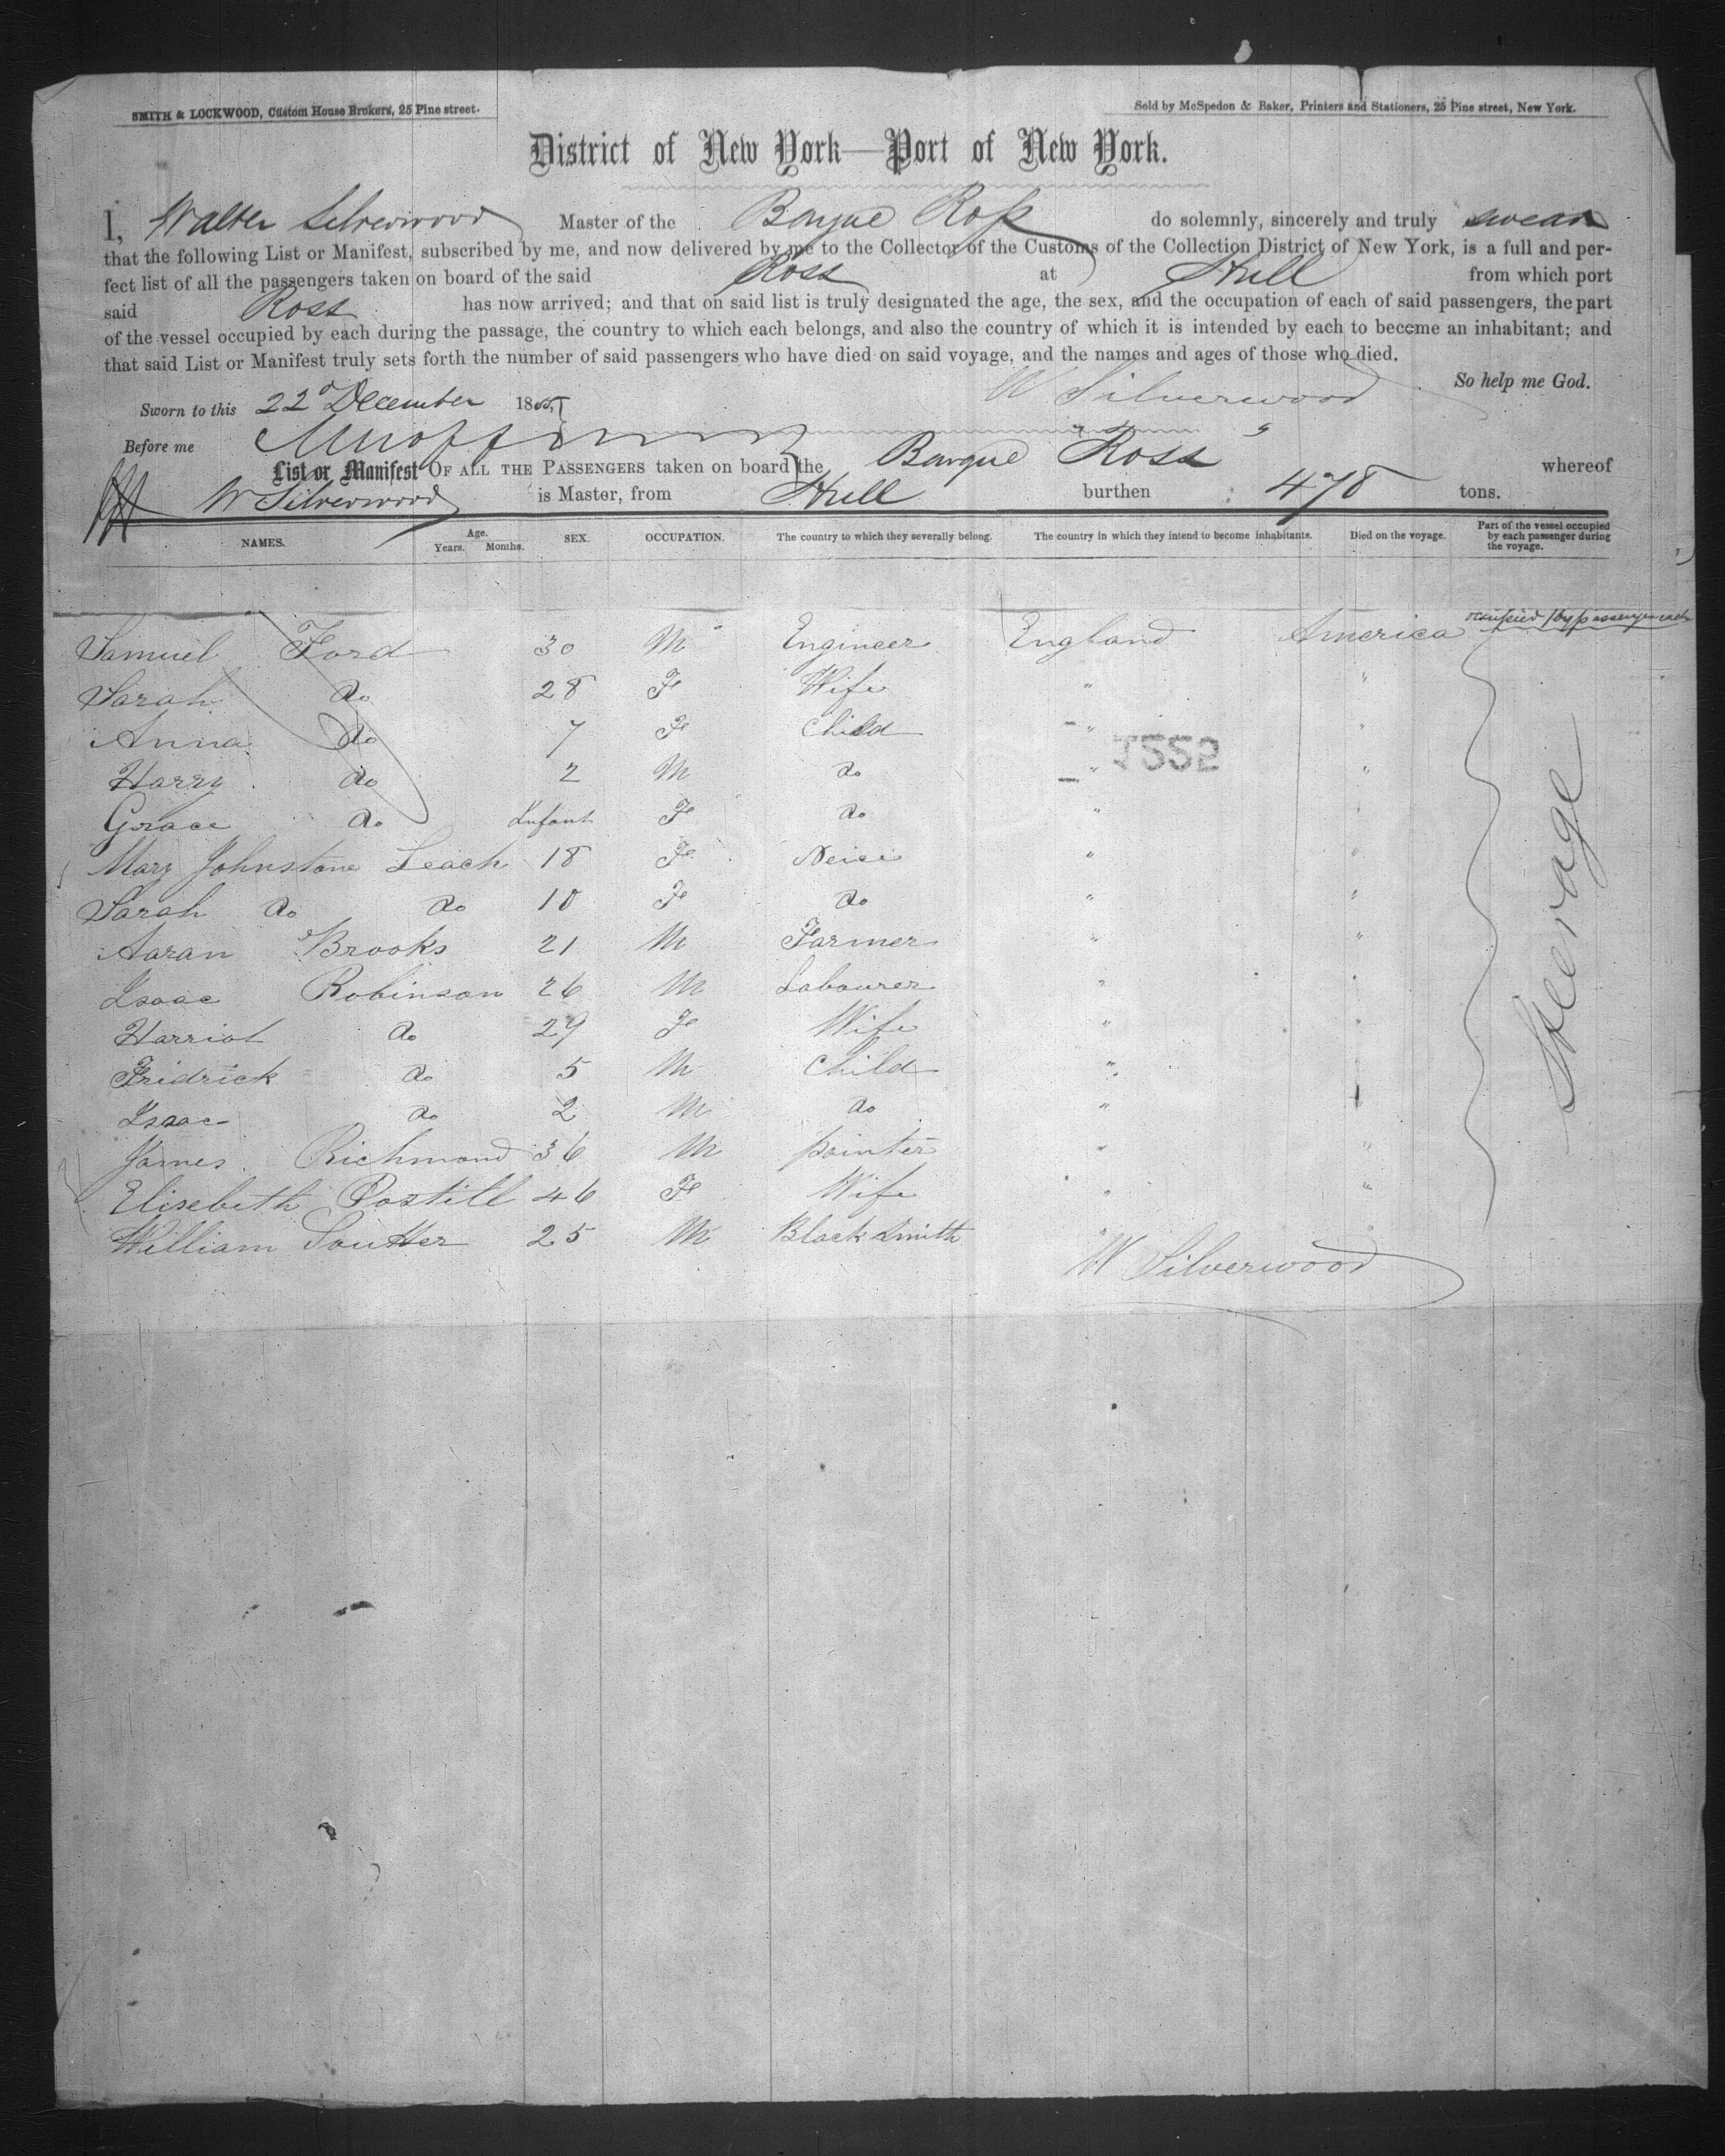 SMITH & LOCKWOOD, Custom House Brokers, 25 Pine street.
Sold by McSpedon & Baker, Printers and Stationers, 25 Pine street, New York.
District of New York—Port of New York.
I, Walter Silverwood Master of the Barque Ross do solemnly, sincerely and truly swear
that the following List or Manifest, subscribed by me, and now delivered by me to the Collector of the Customs of the Collection District of New York, is a full and per-
fect list of all the passengers taken on board of the said Ross at Hull from which port
said Ross has now arrived; and that on said list is truly designated the age, the sex, and the occupation of each of said passengers, the part
of the vessel occupied by each during the passage, the country to which each belongs, and also the country of which it is intended by each to become an inhabitant; and
that said List or Manifest truly sets forth the number of said passengers who have died on said voyage, and the names and ages of those who died.
So help me God.
W Silverwood
Sworn to this 22d December 1855
Before me
List or Manifest OF ALL THE PASSENGERS taken on board the Barque Ross whereof
W Silverwood is Master, from Hull burthen 478 tons.
NAMES. Age. Years. Months. SEX. OCCUPATION. The country to which they severally belong. The country in which they intend to become inhabitants. Died on the voyage. Part of the vessel occupied by each passenger during the voyage.
occupied by passengers each
Samuel Ford 30 M Engineer England America
Sarah Do 28 F Wife " "
Anna Do 7 F Child " "
Harry Do 2 M Do " "
Grace Do Infant F Do " "
Mary Johnstone Leach 18 F Neice " "
Sarah Do Do 10 F Do " "
Aaran Brooks 21 M Farmer " "
Isaac Robinson 26 M Labourer " "
Harriot Do 29 F Wife " "
Fridrick Do 5 M Child " "
Isaac Do 2 M Do " "
James Richmond 36 M painter " "
Elisebeth Postill 46 F Wife " "
William Soutter 25 M Black Smith " "
Steerage
1552
W Silverwood